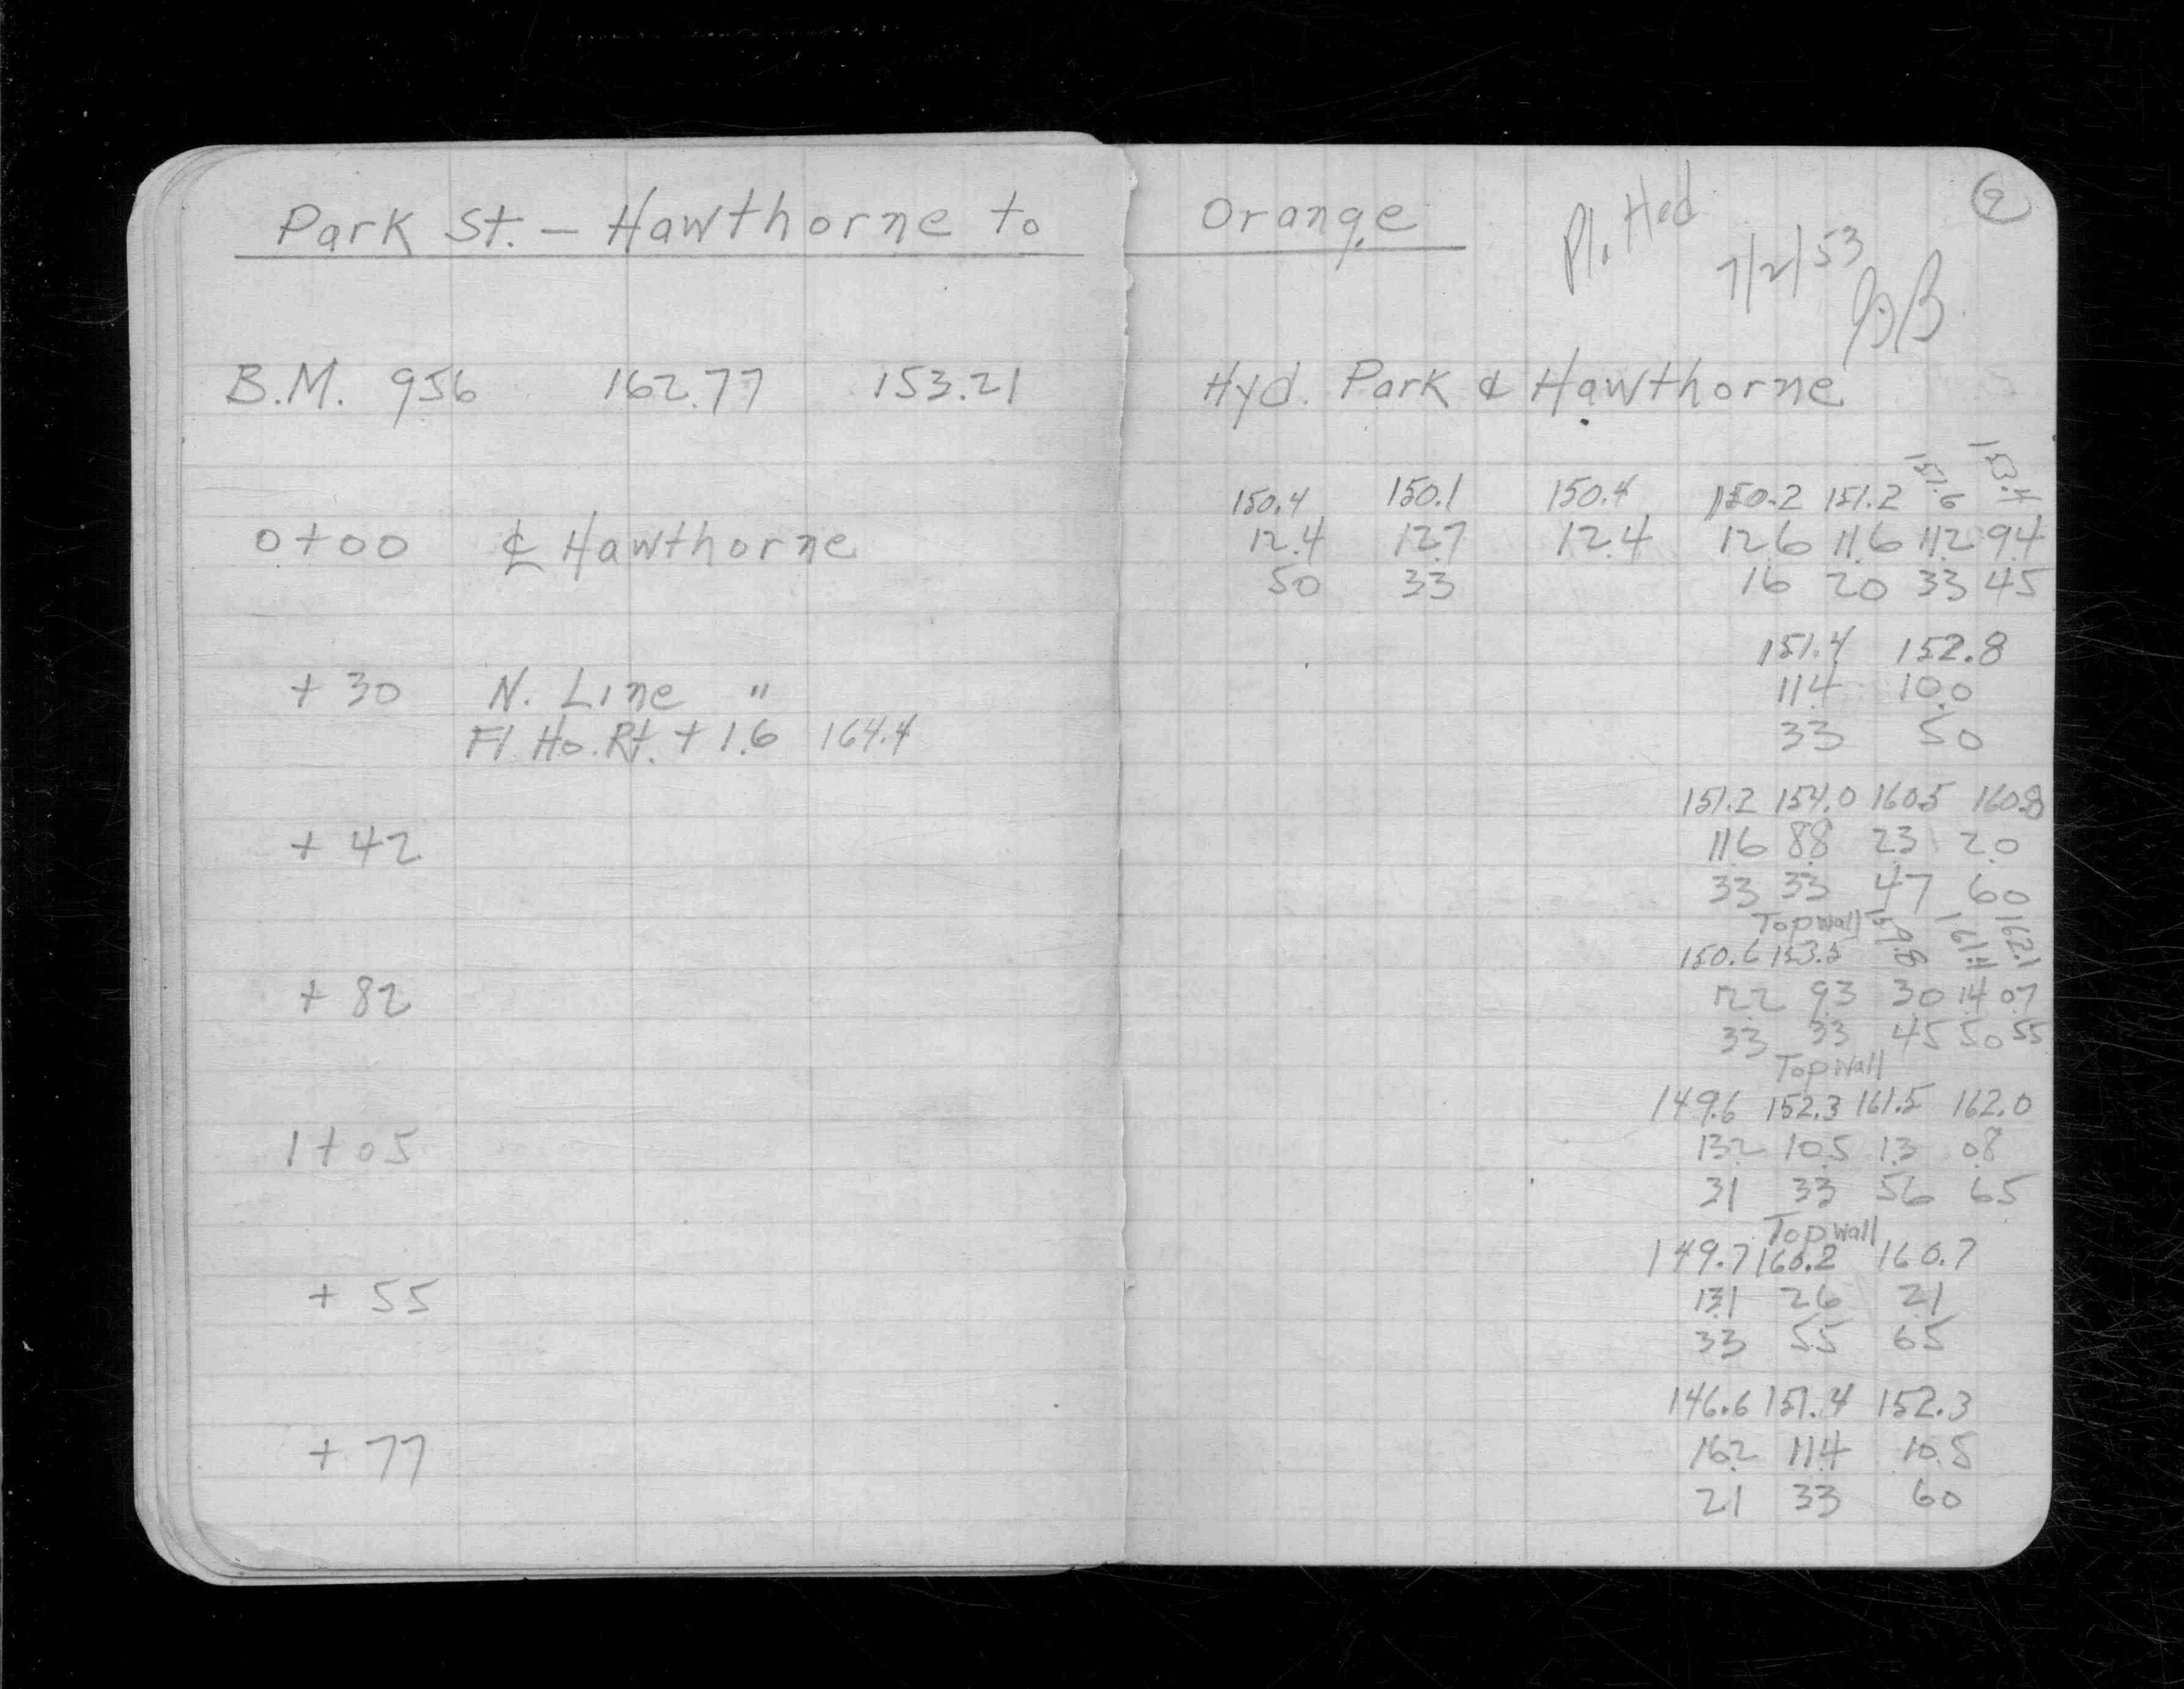 Park St. – Hawthorne to Orange
Pl. Hed
7/2/53
2
B.M. 956 162.77 153.21 Hyd. Park & Hawthorne
150.4 150.1 150.4 150.2 151.2 151.6 153.4
0+00 ℄ Hawthorne 12.4 12.7 12.4 12.6 11.6 11.2 9.4
50 33 16 20 33 45
151.4 152.8
+30 N. Line " 11.4 10.0
Fl. Ho. Rt. + 1.6 164.4 33 50
151.2 154.0 160.5 160.8
+42 11.6 8.8 2.3 2.0
33 33 47 60
Top wall
150.6 153.5 159.8 161.4 162.1
+82 12.2 9.3 3.0 1.4 0.7
33 33 45 50 55
Top wall
149.6 152.3 161.5 162.0
1+05 13.2 10.5 1.3 0.8
31 33 56 65
Top wall
149.7 160.2 160.7
+55 13.1 2.6 2.1
33 55 65
146.6 151.4 152.3
+77 16.2 11.4 10.5
21 33 60